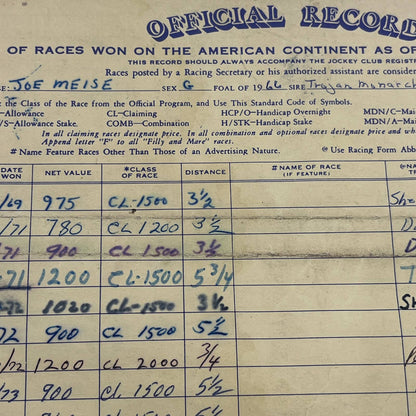 OFFICIAL RECORD
OF RACES WON ON THE AMERICAN CONTINENT AS OF
THIS RECORD SHOULD ALWAYS ACCOMPANY THE JOCKEY CLUB REGISTR
Races posted by a Racing Secretary or his authorized assistant are consider
SE: JOE MEISE SEX G FOAL OF 1966 SIRE Trojan Monarch
the Class of the Race from the Official Program, and Use This Standard Code of Symbols.
Allowance CL—Claiming HCP/O—Handicap Overnight MDN/C—Ma
/S—Allowance Stake COMB—Combination H/STK—Handicap Stake MDN/A—Mai
In all claiming races designate price. In all combination and optional races designate price and t
Append letter "F" to all "Filly and Mare" races.
# Name Feature Races Other Than Those of an Advertising Nature. @ Use Racing Form Abb
DATE WON NET VALUE *CLASS OF RACE DISTANCE # NAME OF RACE (IF FEATURE) @NA TR
/69 975 CL-1500 3½ Sh
/71 780 CL 1200 3½ D
/71 900 CL 1500 3½ D
-71 1200 CL-1500 5 3/4 T
-72 1020 CL-1500 3½ SH
72 900 CL 1500 5½
/72 1200 CL 2000 3/4
/73 900 CL 1500 5½
5½